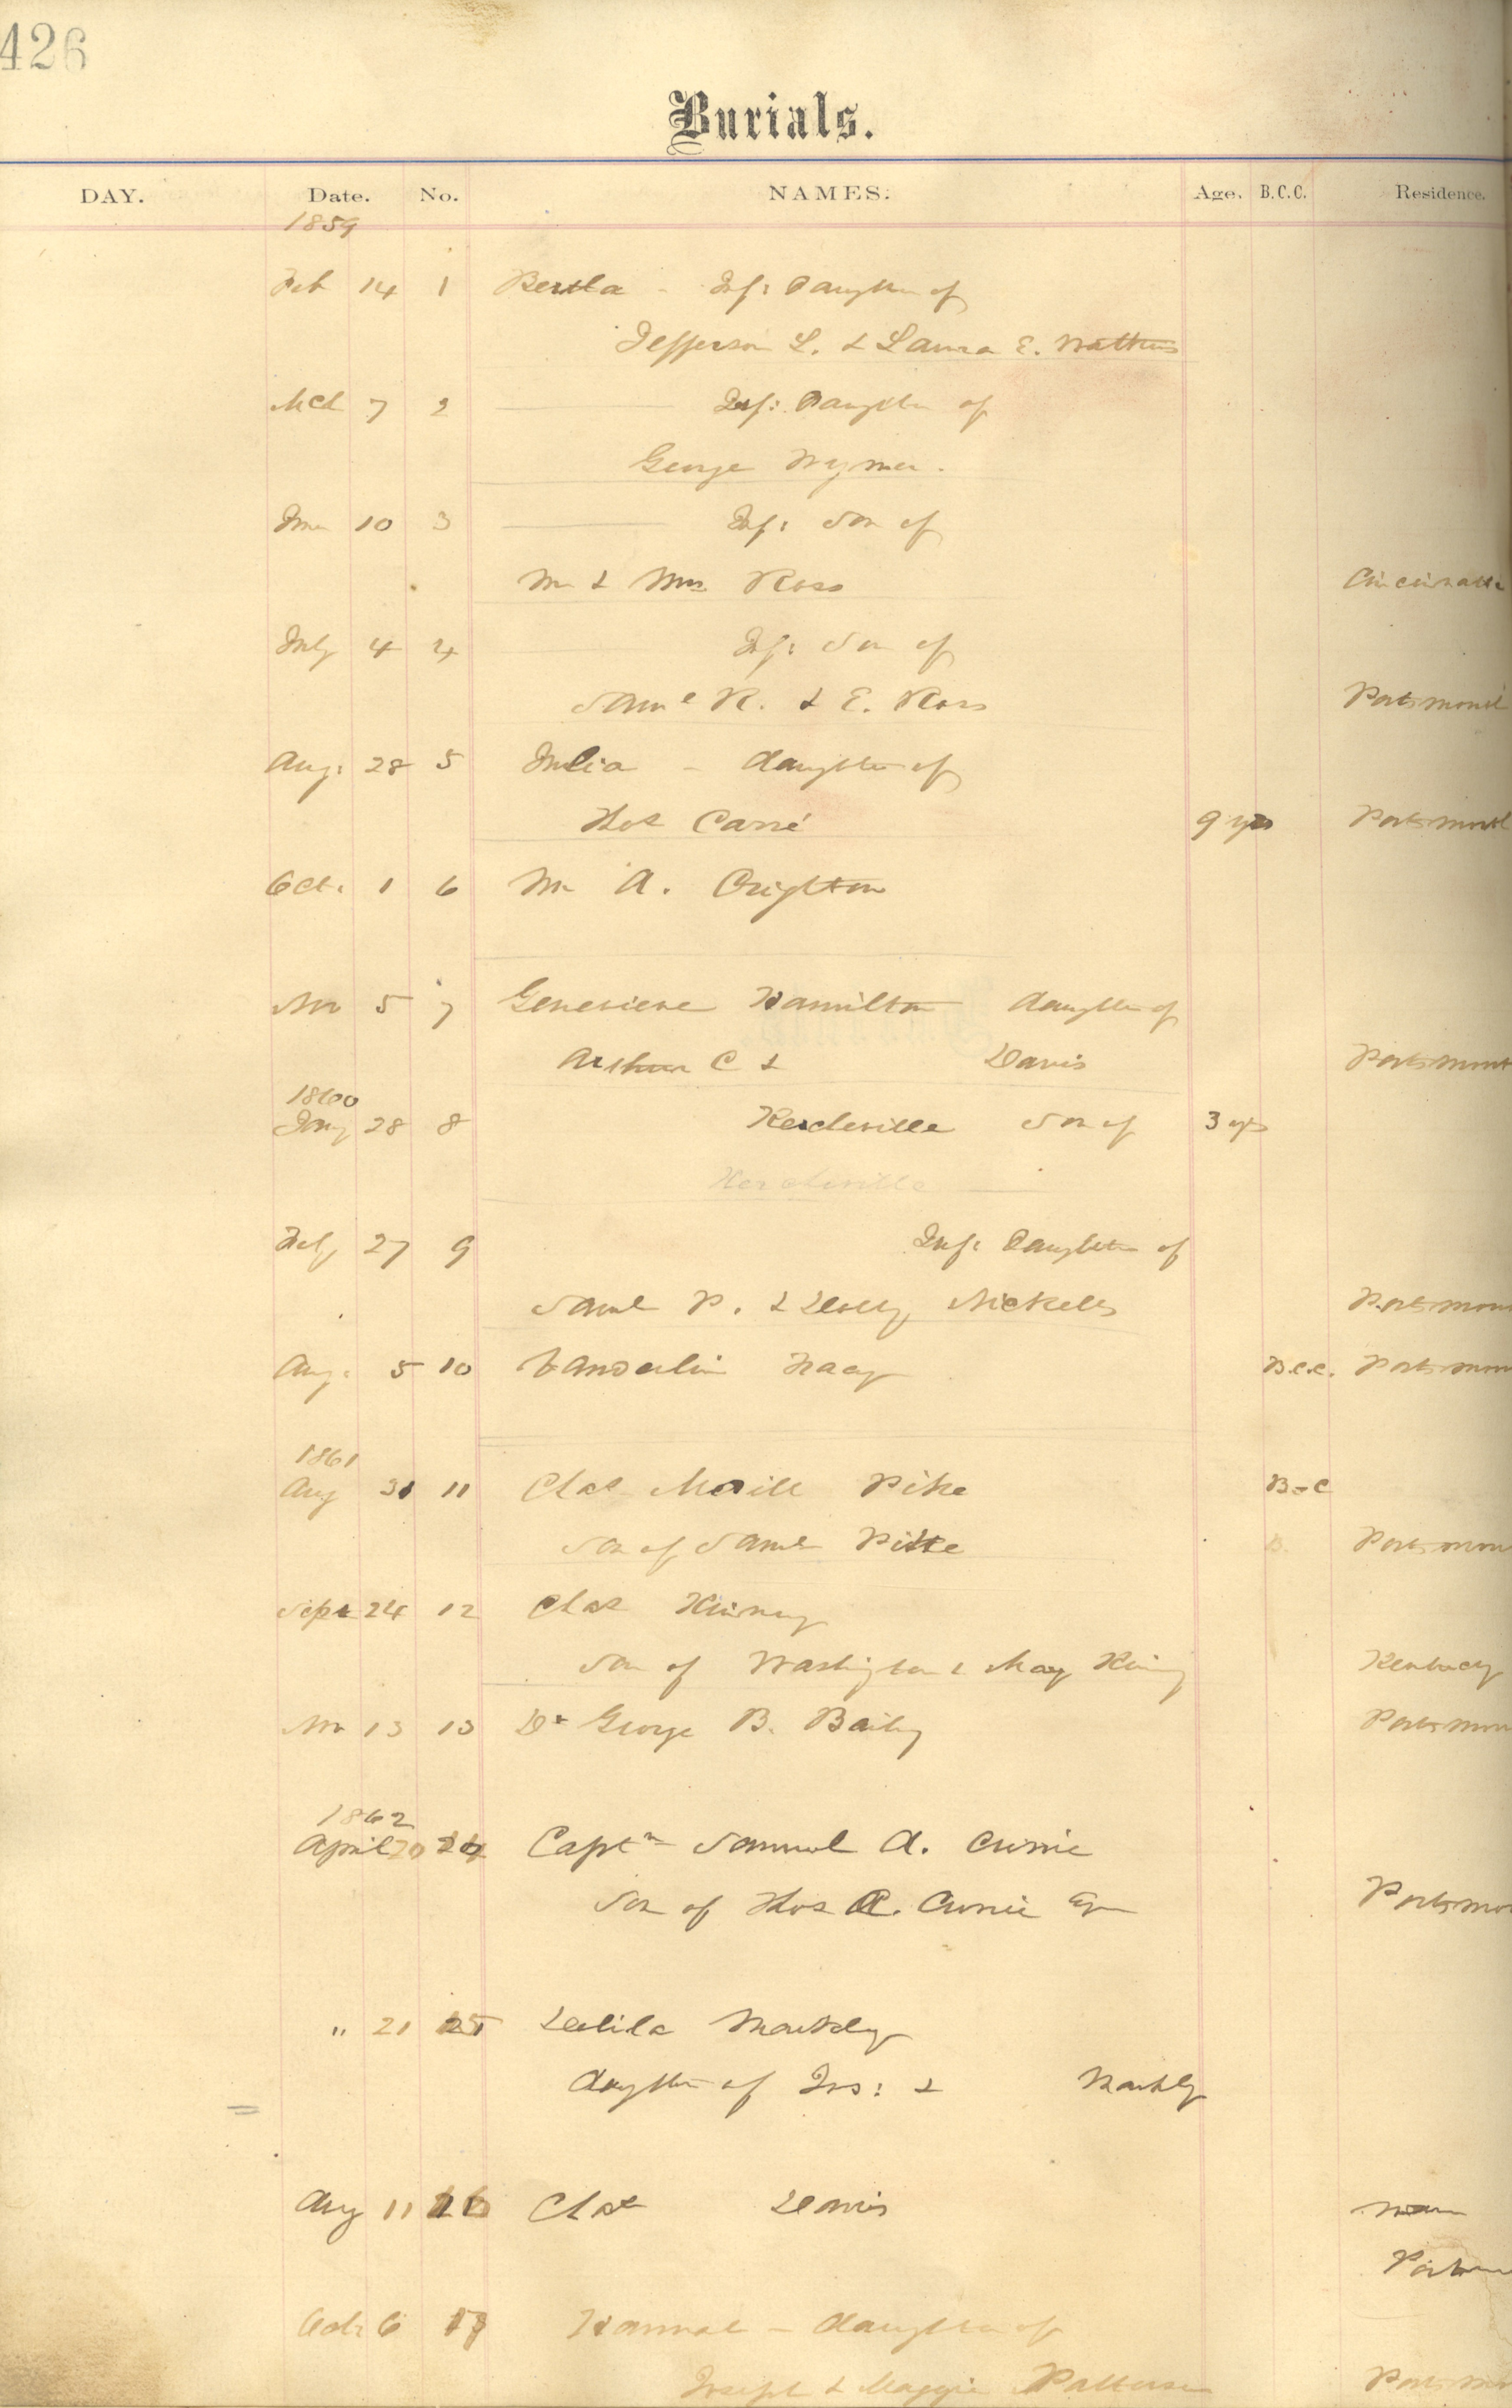 426
Burials.
DAY. Date. No. NAMES. Age. B.C.C. Residence.
1859
Feb 14 1 Bertha - Inf: Daughter of
Jefferson L. & Laura E. Watkins
Mch 7 2 Inf: Daughter of
George Wymer.
June 10 3 Inf: Son of
Mr & Mrs Ross Cincinnati
July 4 4 Inf: Son of
Saml R. & E. Ross Portsmouth
Aug: 28 5 Julia - daughter of
Thos Carré 9 yrs Portsmouth
Oct. 1 6 Mr A. Crighton
Nov 5 7 Genevieve Hamilton daughter of
Arthur C & Davis Portsmout
1860
Jany 28 8 Kercheville Son of 3 yrs
Kercheville
Feby 27 9 Inf: Daughter of
Saml P. & Dolly Nickells Portsmou
Aug: 5 10 Tracy B.C.C. Portsmou
1861
Aug 31 11 Chas Pike B-C
Son of Saml Pike Portsmou
Sept 24 12 Chas Kinney
Son of Washington & May Kinney Kentucky
Nov 13 13 Dr George B. Baily Portsmou
1862
April 20 14 Captn Samuel A. Currie
Son of Thos A. Currie Esq Portsmou
" 21 15 Delila
daughter of Jos: &
Aug 11 16 Chas Davis near
Portsm
Oct 6 17 Hannah - daughter of
Joseph & Maggie Patterson Portsmo